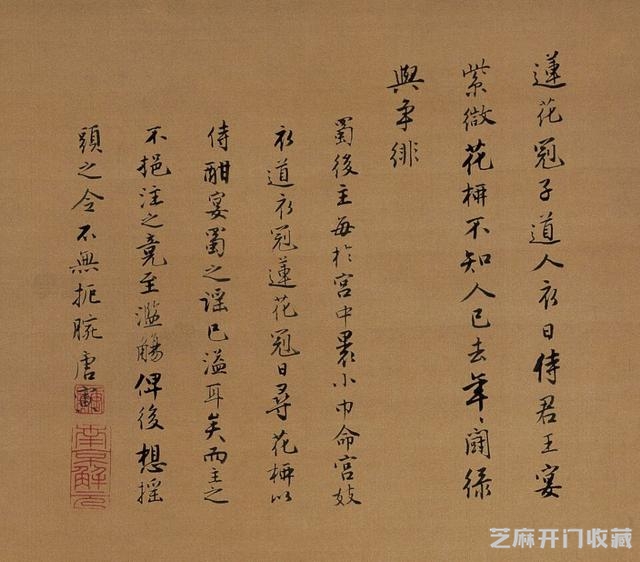 蓮花冠子道人衣日侍君王宴
紫微花柳不知人已去年〻鬪綠
與爭緋
蜀後主每於宮中裹小巾命宮妓
衣道衣冠蓮花冠日尋花柳以
侍酣宴蜀之謠已溢耳矣而主之
不挹注之竟至濫觴俾後想搖
頭之令不無扼腕唐寅
唐寅
南京解元
芝麻开门收藏